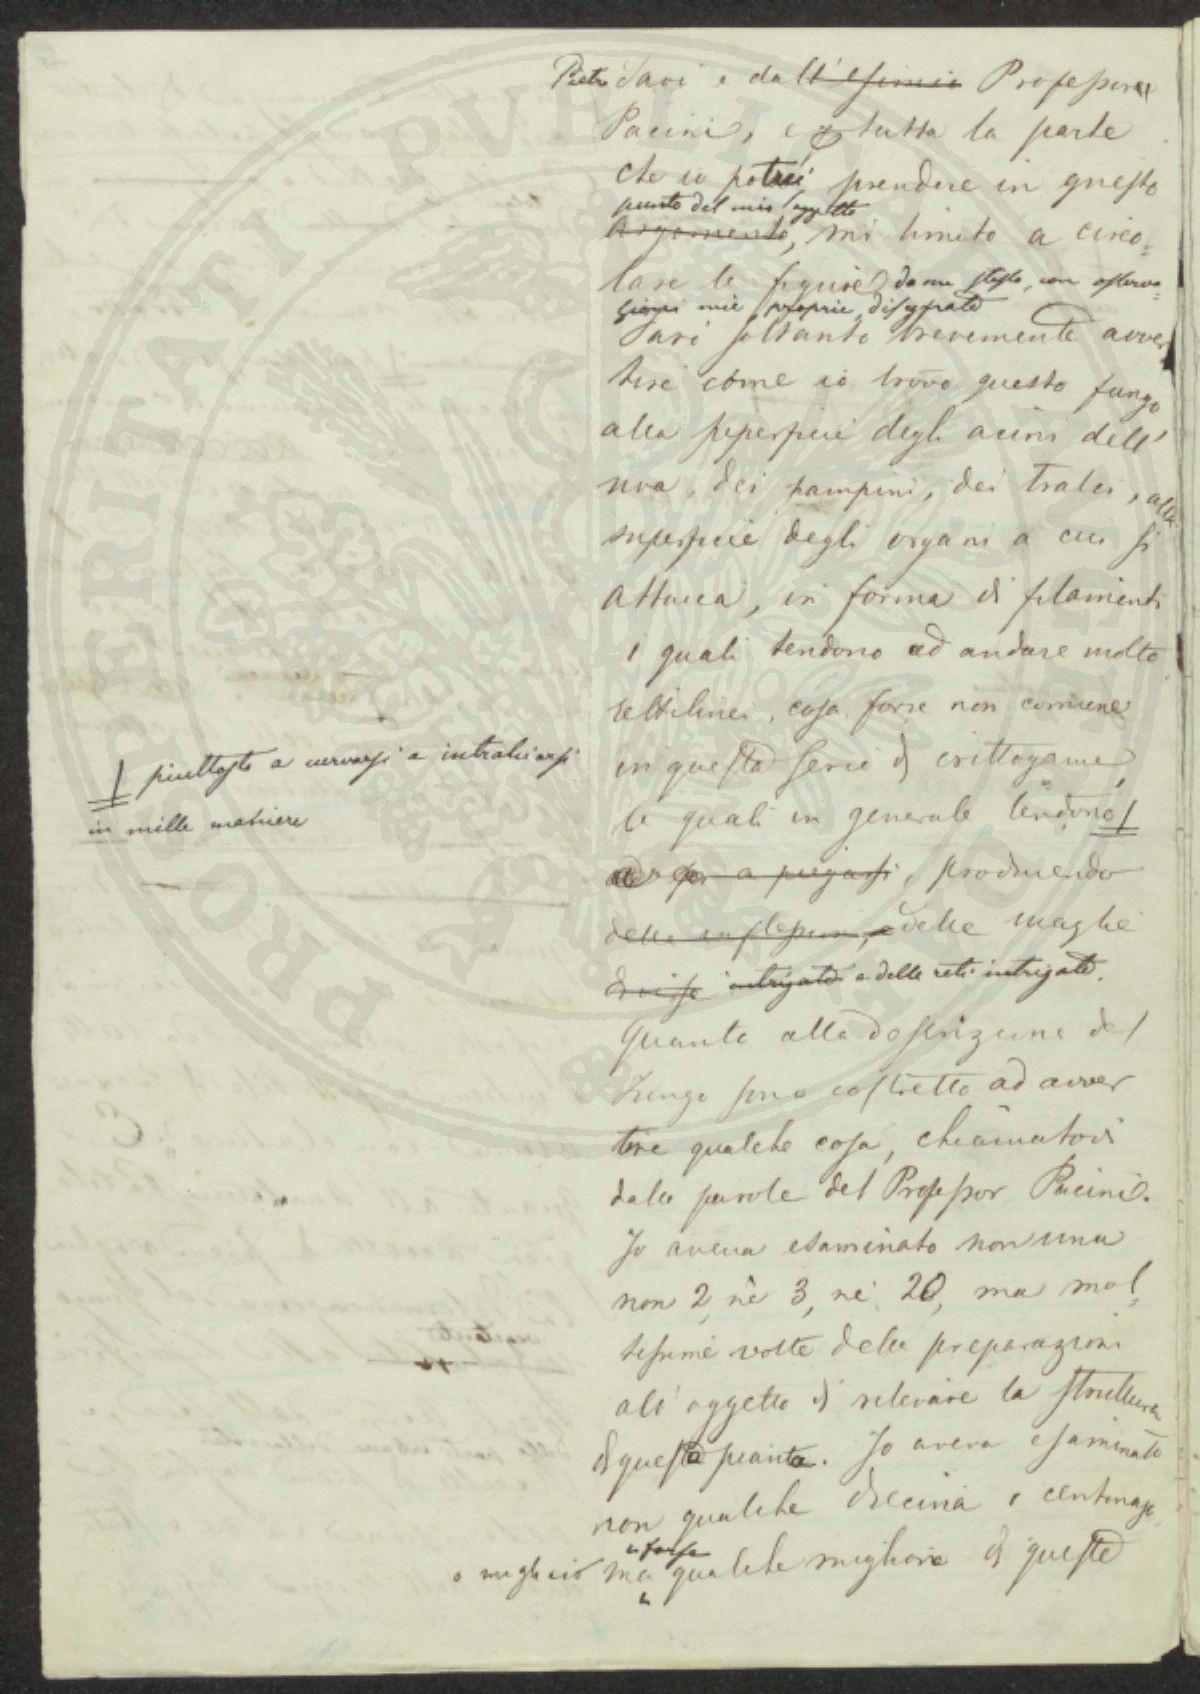 Pietro Savi e dall'esimio Professore
Pacini, e tutta la parte
che io potrei prendere in questo
punto del mio soggetto
argomento, mi limito a circo=
lare le figure da me stesso, con osserva=
zioni mie proprie, disegnate
Farò soltanto brevemente avver
tire come io trovo questo fungo
alla superficie degli acini dell'
uva, dei pampini, dei tralci, alla
superficie degli organi a cui si
attacca, in forma di filamenti
i quali tendono ad andare molto
rettilinei, cosa forse non comune
in questa serie di crittogame,
le quali in generale tendono
piuttosto a curvarsi e intralciarsi
in mille maniere
a piegarsi, producendo
delle inflessioni, e delle maglie
intrigate e delle reti intrigate.
Quanto alla descrizione del
Fungo sono costretto ad avver
tire qualche cosa, chiamatovi
dalle parole del Professor Pacini.
Io aveva esaminato non una
non 2, nè 3, nè 20, ma mol=
tissime volte delle preparazioni
all'oggetto di rilevare la struttura
di questa pianta. Io aveva esaminato
non qualche diecina o centinajo
o migliaio
forse
ma qualche migliore di queste
PROSPERITATI PUBLICAE